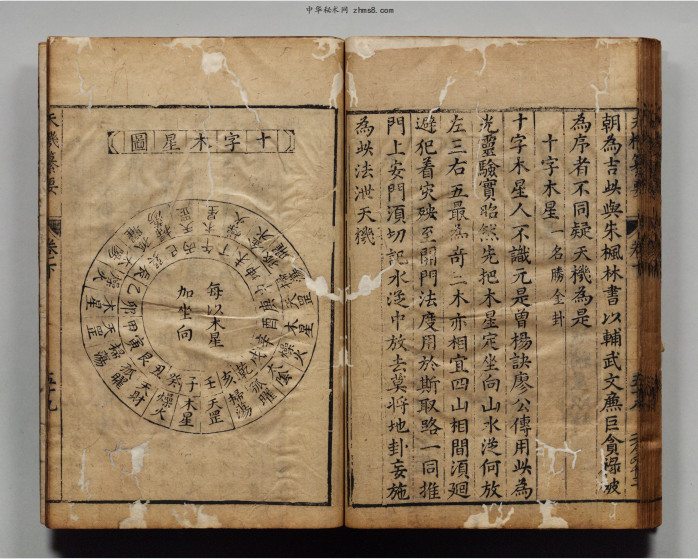 中华秘术网 zhms8.com
朝為吉此與朱楓林書以輔武文廉巨貪祿破
為序者不同疑天機為是
十字木星 一名勝金卦
十字木星人不識元是曾楊訣廖公傳用此為
光靈驗實昭然先把木星定坐向山水迯何放
左三右五最為奇二木亦相宜四山相間湏廻
避犯着灾殃至開門法度用於斯取路一同推
門上安門湏切記水迯中放去莫將地卦妄施
為此法泄天機
天機纂要
卷下
五十九
十字木星圖
每以木星
加坐向
子癸丑艮寅甲卯乙辰巽巳丙午丁未坤申庚酉辛戌乾亥壬
木星
燥火
天財
孤曜
天罡
掃蕩